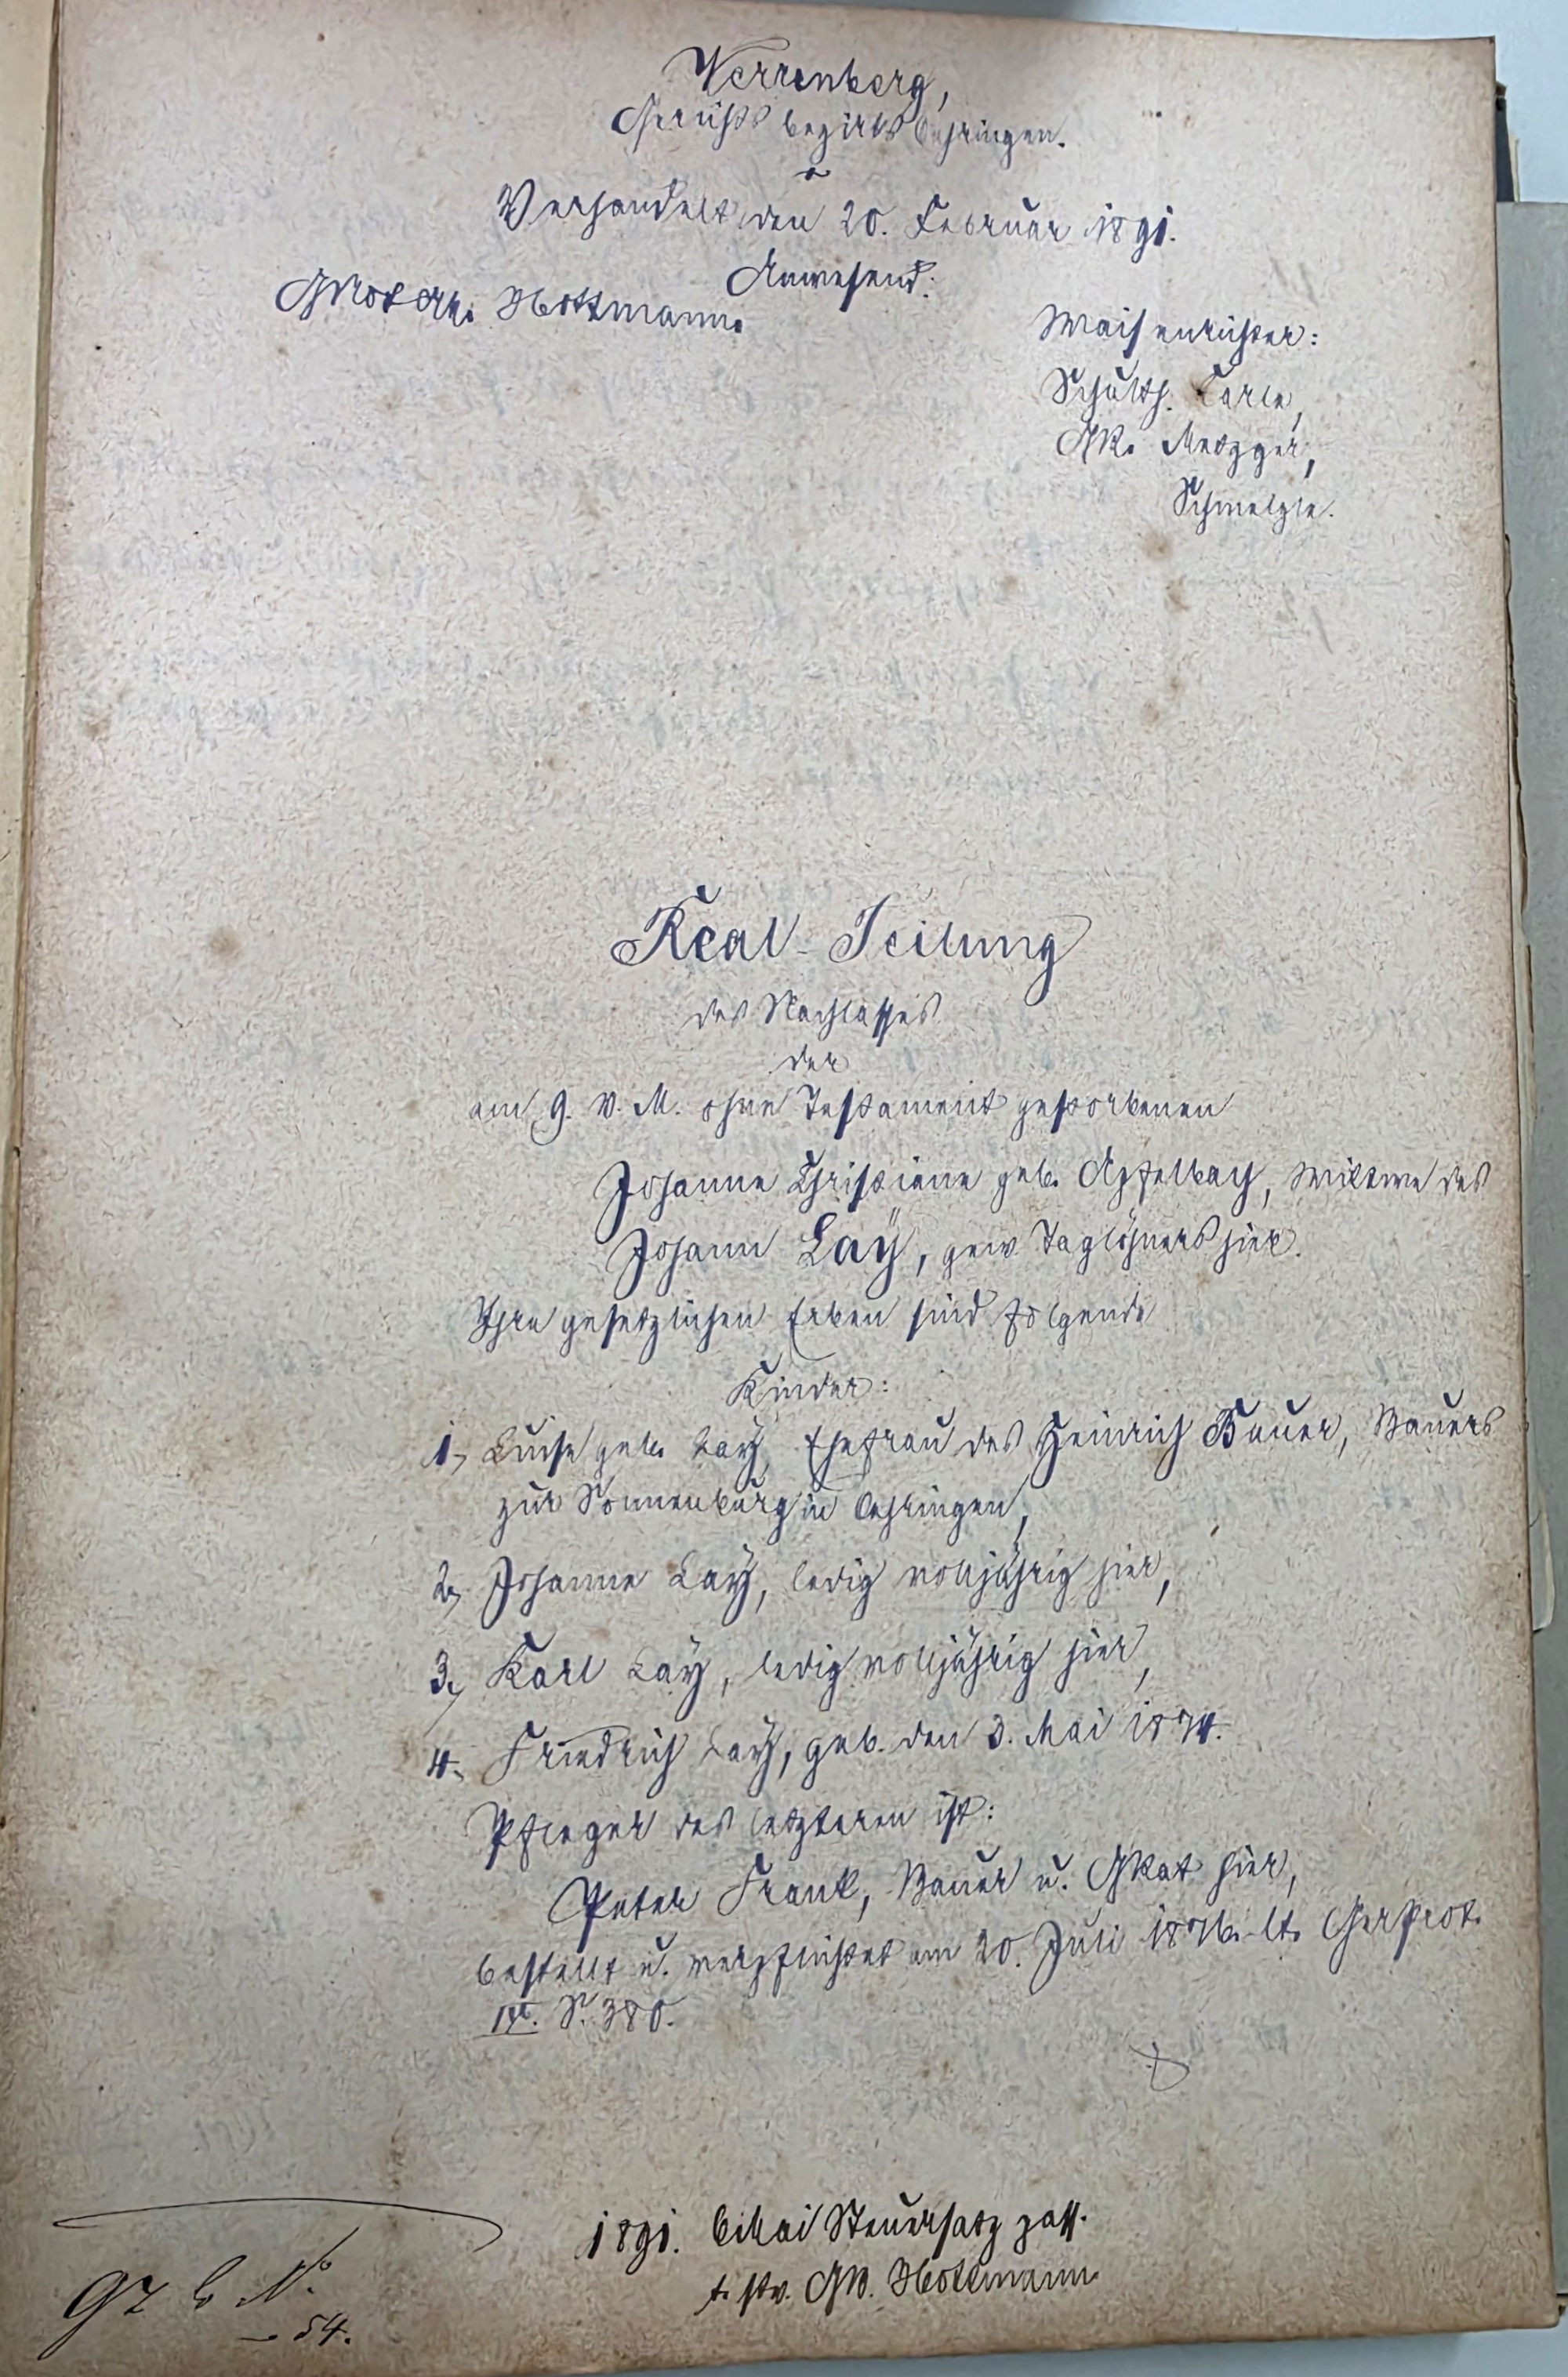 Verrenberg,
Gerichtsbezirks Oehringen.
Verhandelt den 20. Februar 1891.
Anwesend:
Hottmann.
Waisenrichter:
Schulth. Karle,
GR. Metzger,
Schmelzle.
Real-Teilung
des Nachlasses
der
am 9. v. M. ohne Testament gestorbenen
Johanne Christiane geb. Apfelbach, Wittwe des
Johann Lay, gew. Taglöhners hier.
Ihre gesetzlichen Erben sind folgende
Kinder:
1, Luise geb. Lay, Ehefrau des Heinrich Bauer, Bauers
zur Sonnenburg in Oehringen,
2, Johanne Lay, ledig volljährig hier,
3, Karl Lay, ledig volljährig hier,
4, Friedrich Lay, geb. den 3. Mai 1874.
Pfleger des letzteren ist:
Peter Frank, Bauer u. GRat hier,
bestellt u. verpflichtet am 20. Juli 1876. lt. GerProt.
S. 380.
1891. Steuersatz
Hottmann
No.
54.